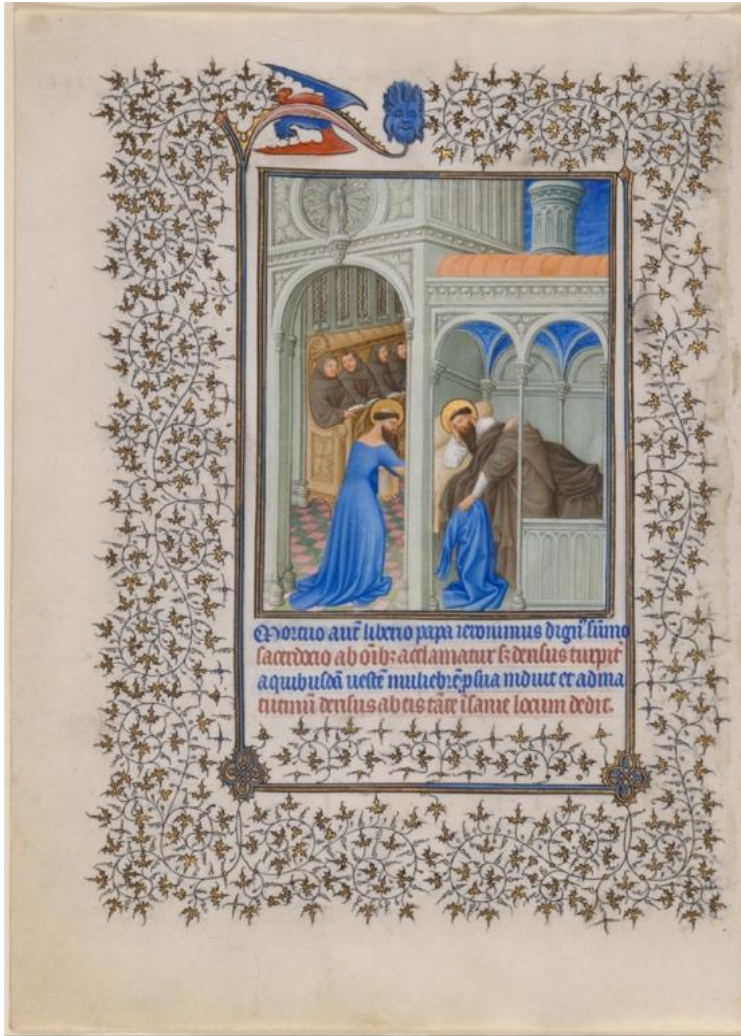 Mortuo aut̄ liberio papa ieronimus dign᷒ sūmo
sacerdocio ab oīb᷒ acclamatur s᷒ derisus turpit̄
a quibusdā uestē muliebrē p sua induit et ad ma
tutinū derisus ab eis tāte īsanie locum dedit.